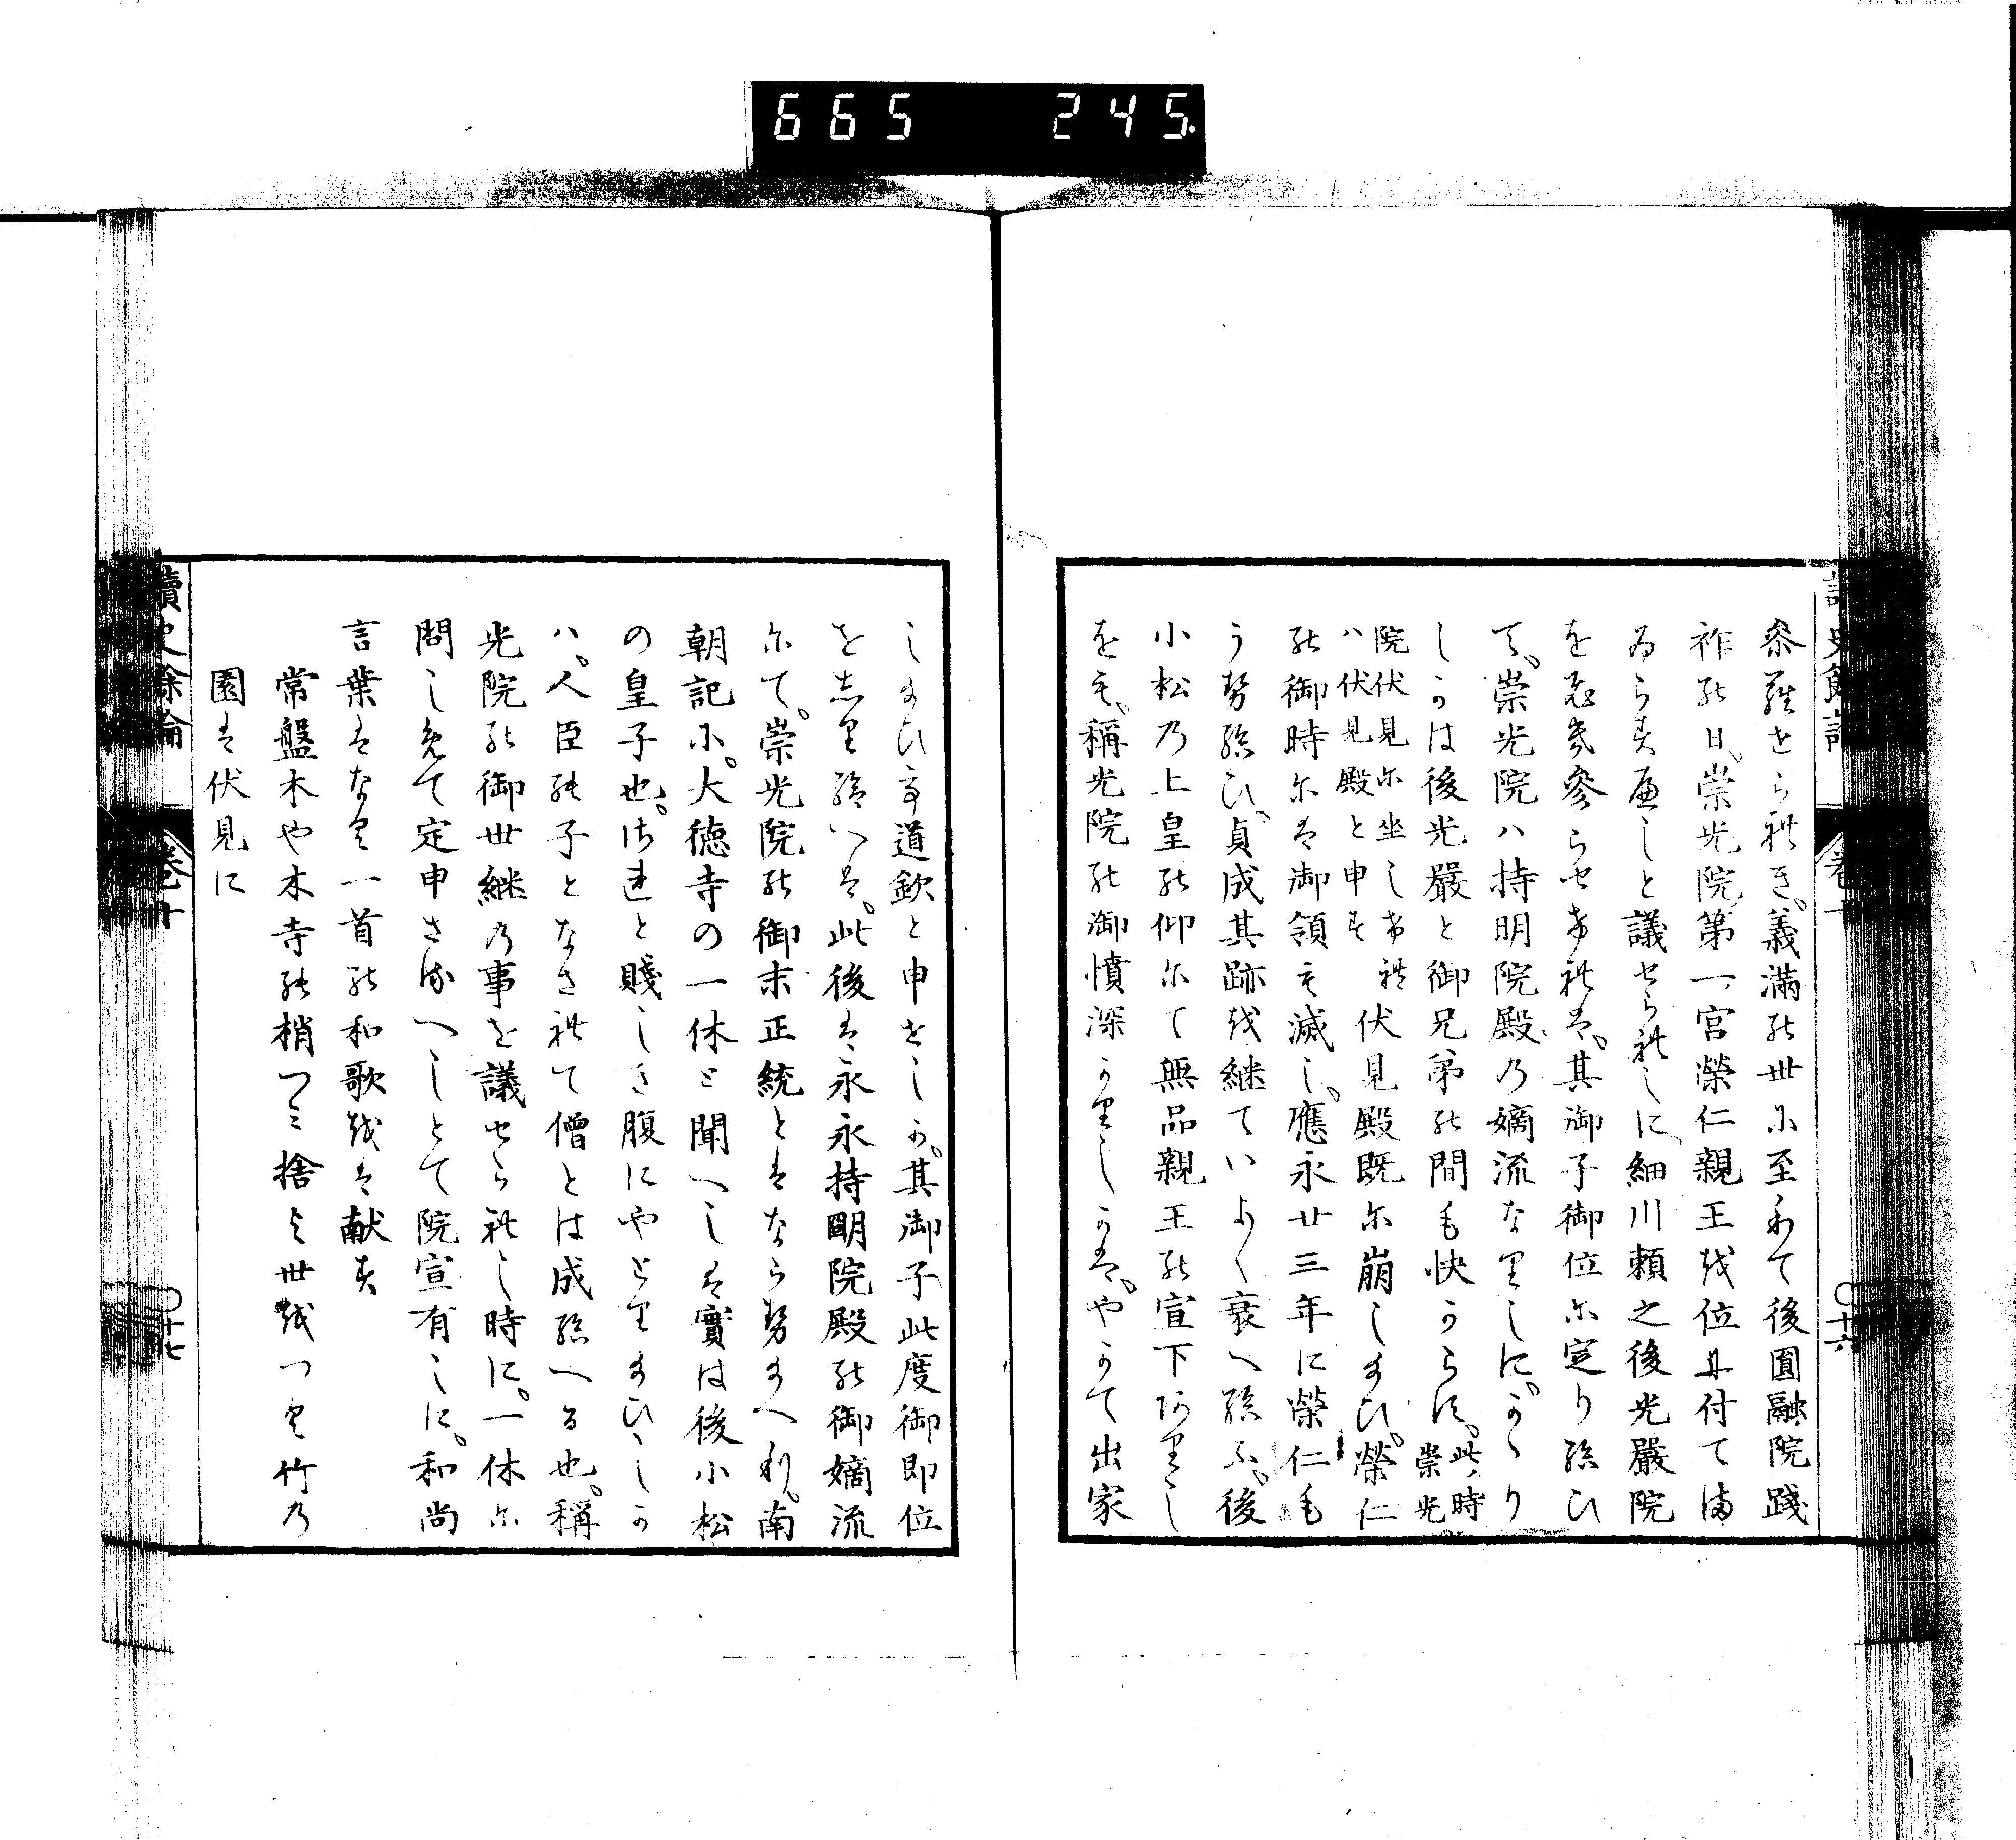 665 245.
讀史餘論
卷十
〇十六
参離せられき、義滿の世に至りて後圓融院踐
祚の日、崇光院第一宮榮仁親王を位に付てま
ゐらすへしと議せられしに、細川頼之後光嚴院
を恐參らせけれは、其御子御位に定り給ひ
て、崇光院ハ持明院殿乃嫡流なりしに、かゝり
しかは後光嚴と御兄弟の間も快からに、此時崇光
院伏見に坐しけれハ伏見殿と申す 伏見殿既に崩しまひ、榮仁
の御時には御領も滅し、應永廿三年に榮仁も
う勢給ひ、貞成其跡を継ていよ〱衰へ給ふ、後
小松乃上皇の仰にて無品親王の宣下ありし
をも、稱光院の御憤深かりしかは、やかて出家
しまひ、道欽と申せしか、其御子此度御即位
を志り給へは、此後は永永持明院殿の御嫡流
にて、崇光院の御末正統とはなら勢まへり、南
朝記に、大徳寺の一休と聞へしは實は後小松
の皇子也、されと賤しき腹にやとりまひしか
ハ、人臣の子となされて僧とは成給へる也、稱
光院の御世継乃事を議せられし時に、一休に
問しめて定申さるへしとて院宣有しに、和尚
言葉はなく一首の和歌をは献す
常盤木や木寺の梢つみ捨よ世をつく竹乃
園は伏見に
讀史餘論
卷十
〇十七